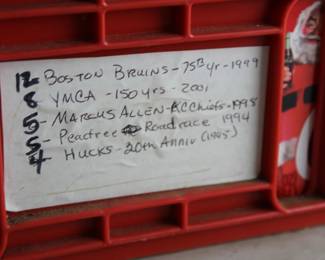 12 BOSTON BRUINS - 75th yr - 1999
8 YMCA - 150 yrs - 2001
5 - MARCUS ALLEN - KC Chiefs - 1998
5 - Peactree Roadrace 1994
4 HUCKS - 20th ANNIV (1985)